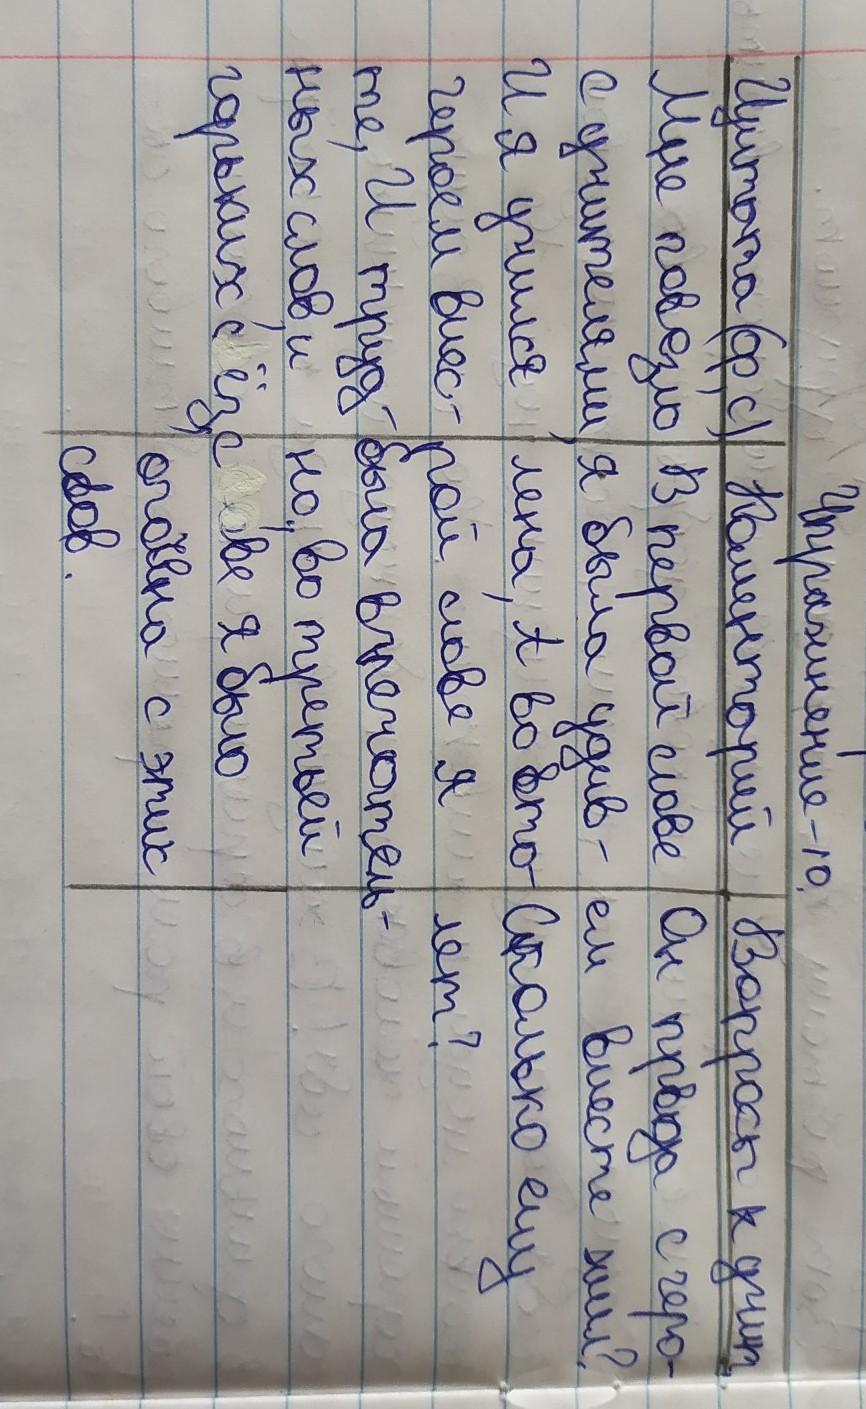 Упражнение-10.
Цытата (ф,с) Коментарий Вопросы к учит.
Мне повезло
с учителями,
И я учился
героем вмес-
те, И труд-
ных слов, и
горьких
В первой слове
я была удив-
лена, А во вто-
рой слове я
была впечатель-
но, во третьей
слове я было
с этих
слов.
Он правда с геро-
ем вместе жил?
Сколько ему
лет?